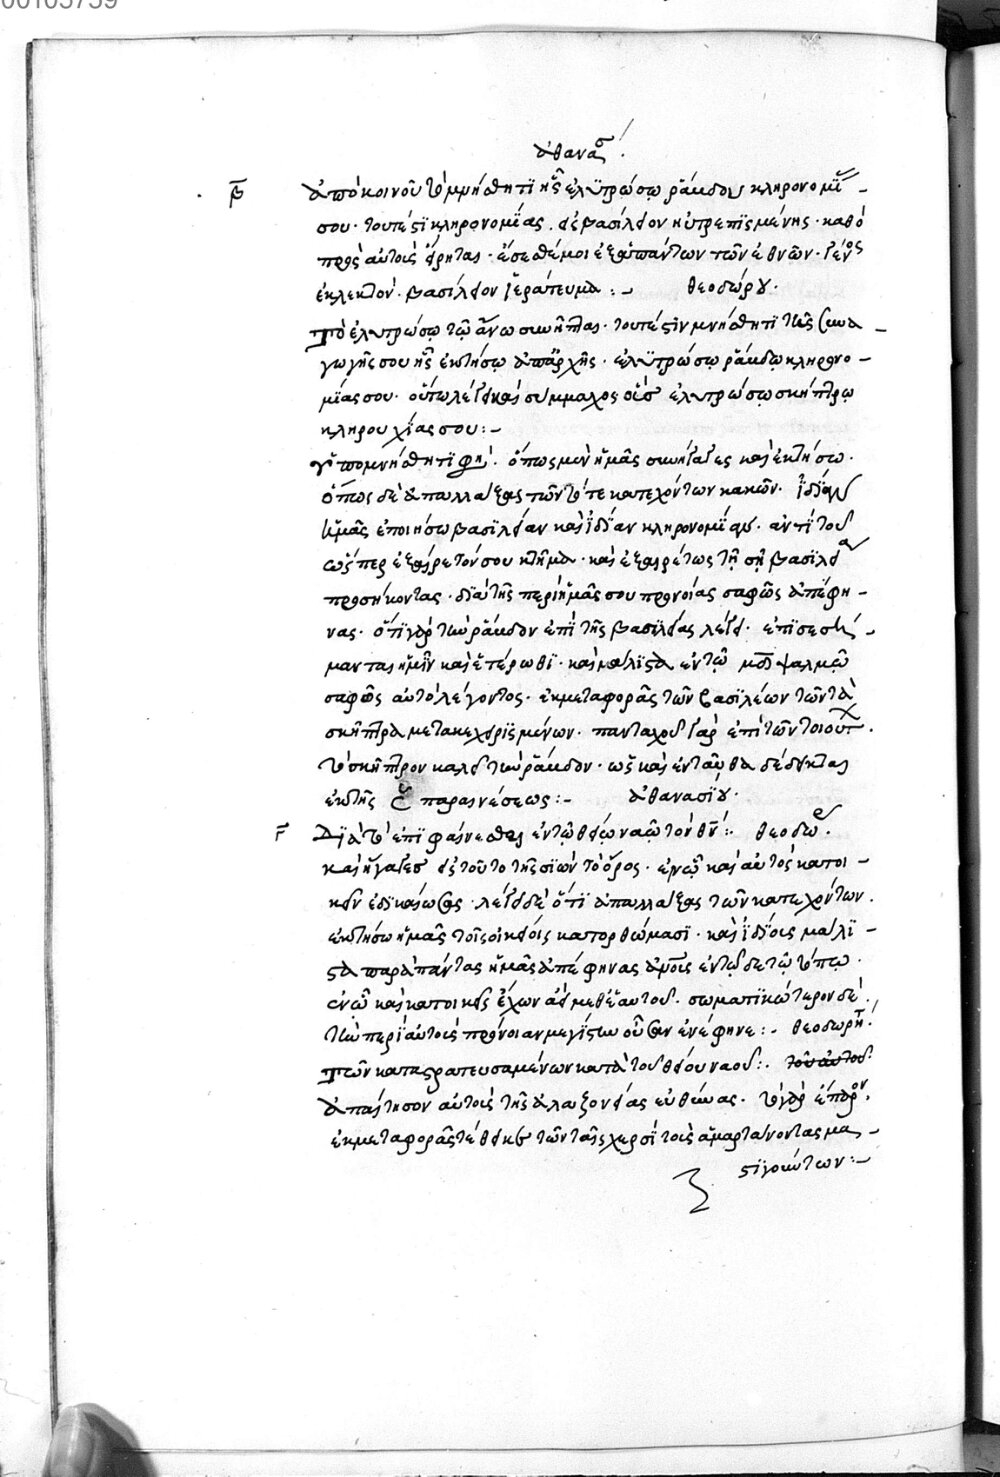 00103759
ἀθανασ
β ἀπὸ κοινοῦ τὸ μνήσθητι ἧς ἐλυτρώσω ῥάβδον κληρονομί–
σου· τουτέστι κληρονομίας· εἰς βασίλειον ηὐτρεπισμένης· καθὸ
πρὸς αὐτοὺς εἴρηται· ἔσεσθέ μοι ἐξ ἁπάντων τῶν ἐθνῶν· γένος
ἐκλεκτόν· βασίλειον ἱεράτευμα :– θεοδώρου·
Τὸ ἐλυτρώσω τῷ ἄνω συνῆπται· τουτέστιν μνήσθητι τῆς συνα–
γωγῆς σου ἧς ἐκτήσω ἀπαρχῆς· ἐλυτρώσω ῥάβδῳ κληρονο–
μίας σου· οὕτω λέγει καὶ σύμμαχος ἐλυτρώσω σκήπτρῳ
κληρουχίας σου :–
ὑπομνήσθητι φη· ὅπως μὲν ἡμᾶς συνήγαγες καὶ ἐκτήσω·
ὅπως δὲ ἀπαλλάξας τῶν τότε κατεχόντων κακῶν· ἰδίαν
ἡμᾶς ἐποιήσω βασιλείαν καὶ ἰδίαν κληρονομίαν· ἀντὶ τοῦ
ὥσπερ ἐξαίρετόν σου κτῆμα· καὶ ἐξαιρέτως τῇ σῇ βασιλεία
προσήκοντας· διὰ τῆς περὶ ἡμᾶς σου προνοίας σαφῶς ἀπέφη–
νας· ὅτι γὰρ τὴν ῥάβδον ἐπὶ τῆς βασιλείας λέγει· ἐπισεση–
μανται ἡμῖν καὶ ἑτέρωθι· καὶ μάλιστα ἐν τῷ μδ ψαλμῷ
σαφῶς αὐτὸ λέγοντος· ἐκ μεταφορᾶς τῶν βασιλέων τῶν τὰ
σκῆπτρα μετακεχειρισμένων· πανταχοῦ γὰρ ἐπὶ τῶν τοιούτ·
τὸ σκῆπτρον καλεῖ τὴν ῥάβδον· ὡς καὶ ἐνταῦθα δέδεικται
ἐκ τῆς παραινέσεως :– ἀθανασίου·
γ Διὰ τὸ ἐπιφαίνεσθαι ἐν τῷ θείῳ ναῷ τὸν θν :· θεοδω·
καὶ ἤγαγες εἰς τοῦτο τῆς σιὼν τὸ ὄρος· ἐν ᾧ καὶ αὐτὸς κατοι–
κεῖν ἐδικαίωσας· λέγει δὲ ὅτι ἀπαλλάξας τῶν κατεχόντων·
ἐκτήσω ἡμᾶς τοῖς οἰκείοις κατορθώμασι· καὶ ἰδίοις μάλι–
στα παρὰ πάντας ἡμᾶς ἀπέφηνας ἐν τῷδε τῷ τόπῳ·
ἐν ᾧ καὶ κατοικεῖς ἔχων ἀεὶ μεθ᾽ ἑαυτοῦ· σωματικώτερον δὲ·
τὴν περὶ αὐτοὺς πρόνοιαν μεγίστην οὖσαν ἐνέφηνε :– θεοδωρή·
τῶν καταστρατευσαμένων κατὰ τοῦ θείου ναοῦ :· τοῦ αὐτοῦ
ἀπαίτησον αὐτοὺς τῆς ἀλαζονείας εὐθύνας· τὸ γὰρ ἔπαρον·
ἐκ μεταφορᾶς τέθεικε τῶν ταῖς χερσὶ τοὺς ἁμαρτάνοντας μα–
στιγούντων :–